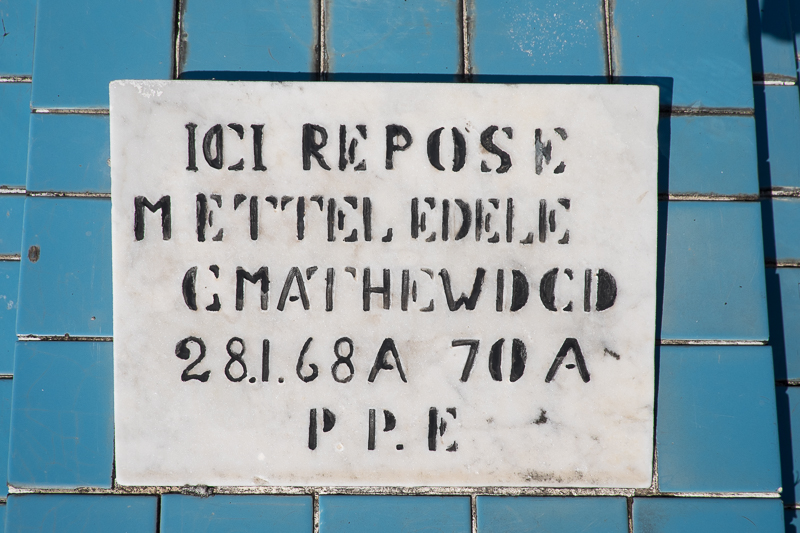 ICI REPOSE
METTELEDELE
CMATHEWDCD
28.1.68A 70A
P P. E